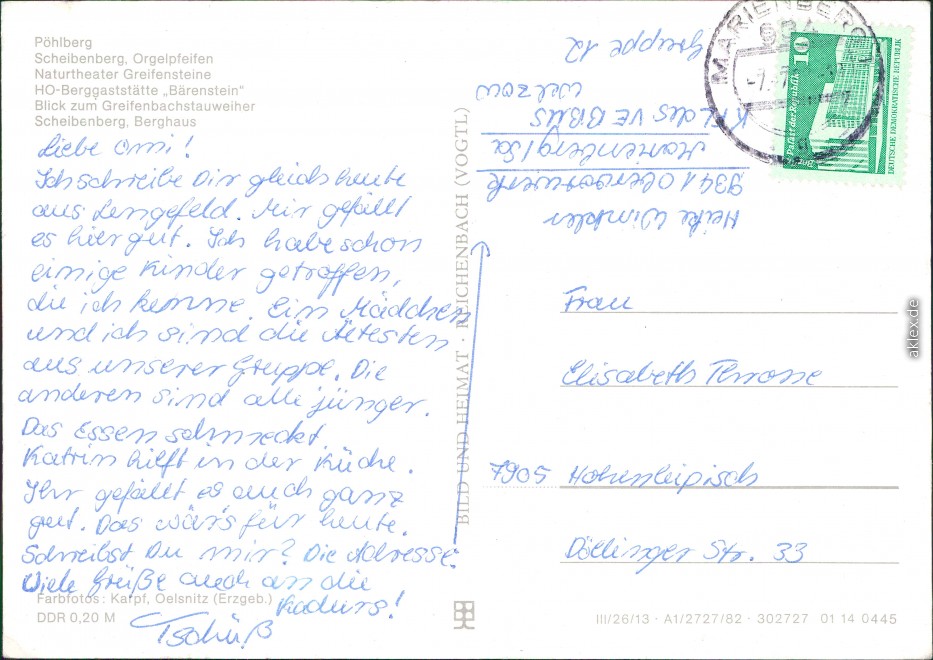 Pöhlberg
Scheibenberg, Orgelpfeifen
Naturtheater Greifensteine
HO-Berggaststätte „Bärenstein"
Blick zum Greifenbachstauweiher
Scheibenberg, Berghaus
Liebe Omi!
Ich schreibe Dir gleich heute
aus Lengefeld. Mir gefällt
es hier gut. Ich habe schon
einige Kinder getroffen,
die ich kenne. Ein Mädchen
und ich sind die Ältesten
aus unserer Gruppe. Die
anderen sind alle jünger.
Das Essen schmeckt.
Katrin hilft in der Küche.
Ihr gefällt es auch ganz
gut. Das wär's für heute.
Schreibst Du mir? Die Adresse:
Viele Grüße auch an die
Tschüß
Farbfotos: Karpf, Oelsnitz (Erzgeb.)
DDR 0,20 M
BILD UND HEIMAT · REICHENBACH (VOGTL)
Heike Winkler
9341 Obervorwerk
Marienberg/Sa
KFL des VE BBUS
Welzow
Gruppe 12
MARIENBERG 1
934
10
Palast der Republik, Berlin
DEUTSCHE DEMOKRATISCHE REPUBLIK
Frau
Elisabeth Terrosse
7905 Hohenleipisch
Döllinger Str. 33
III/26/13 · A1/2727/82 · 302727 01 14 0445
aklex.de